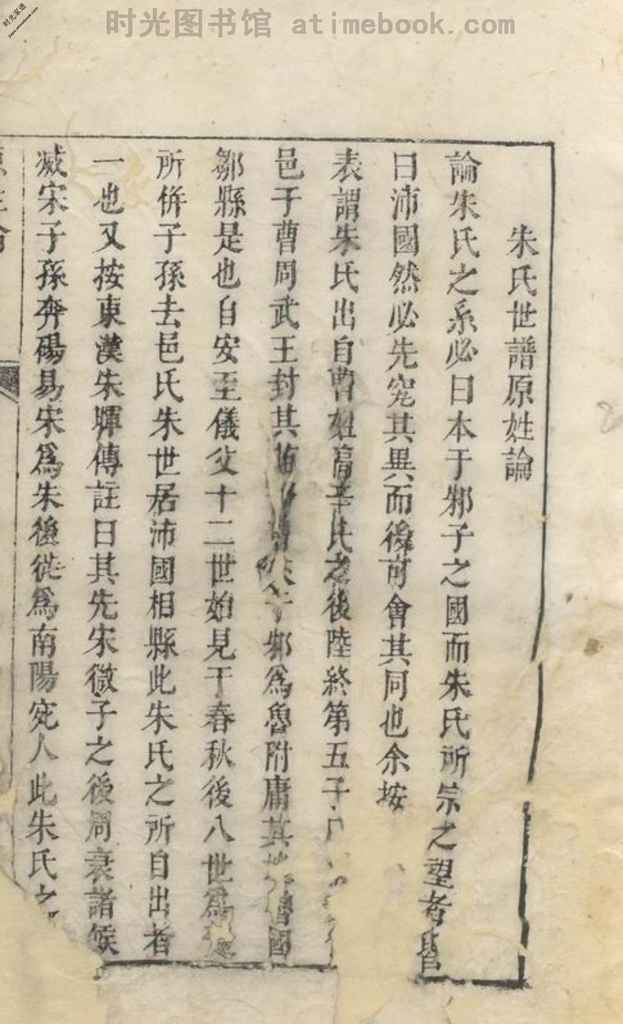 时光图书馆 atimebook.com
朱氏世譜原姓論
論朱氏之系必曰本于邾子之國而朱氏所宗之望者皆
曰沛國然必先究其異而後可會其同也余按
表謂朱氏出自曹姓高辛氏之後陸終第五子
邑于曹周武王封其 于邾爲魯附庸其 國
鄒縣是也自安至儀父十二世始見于春秋後八世爲
所併子孫去邑氏朱世居沛國相縣此朱氏之所自出者
一也又按東漢朱暉傳註曰其先宋微子之後周衰諸侯
滅宋子孫奔碭易宋爲朱後徙爲南陽宛人此朱氏之